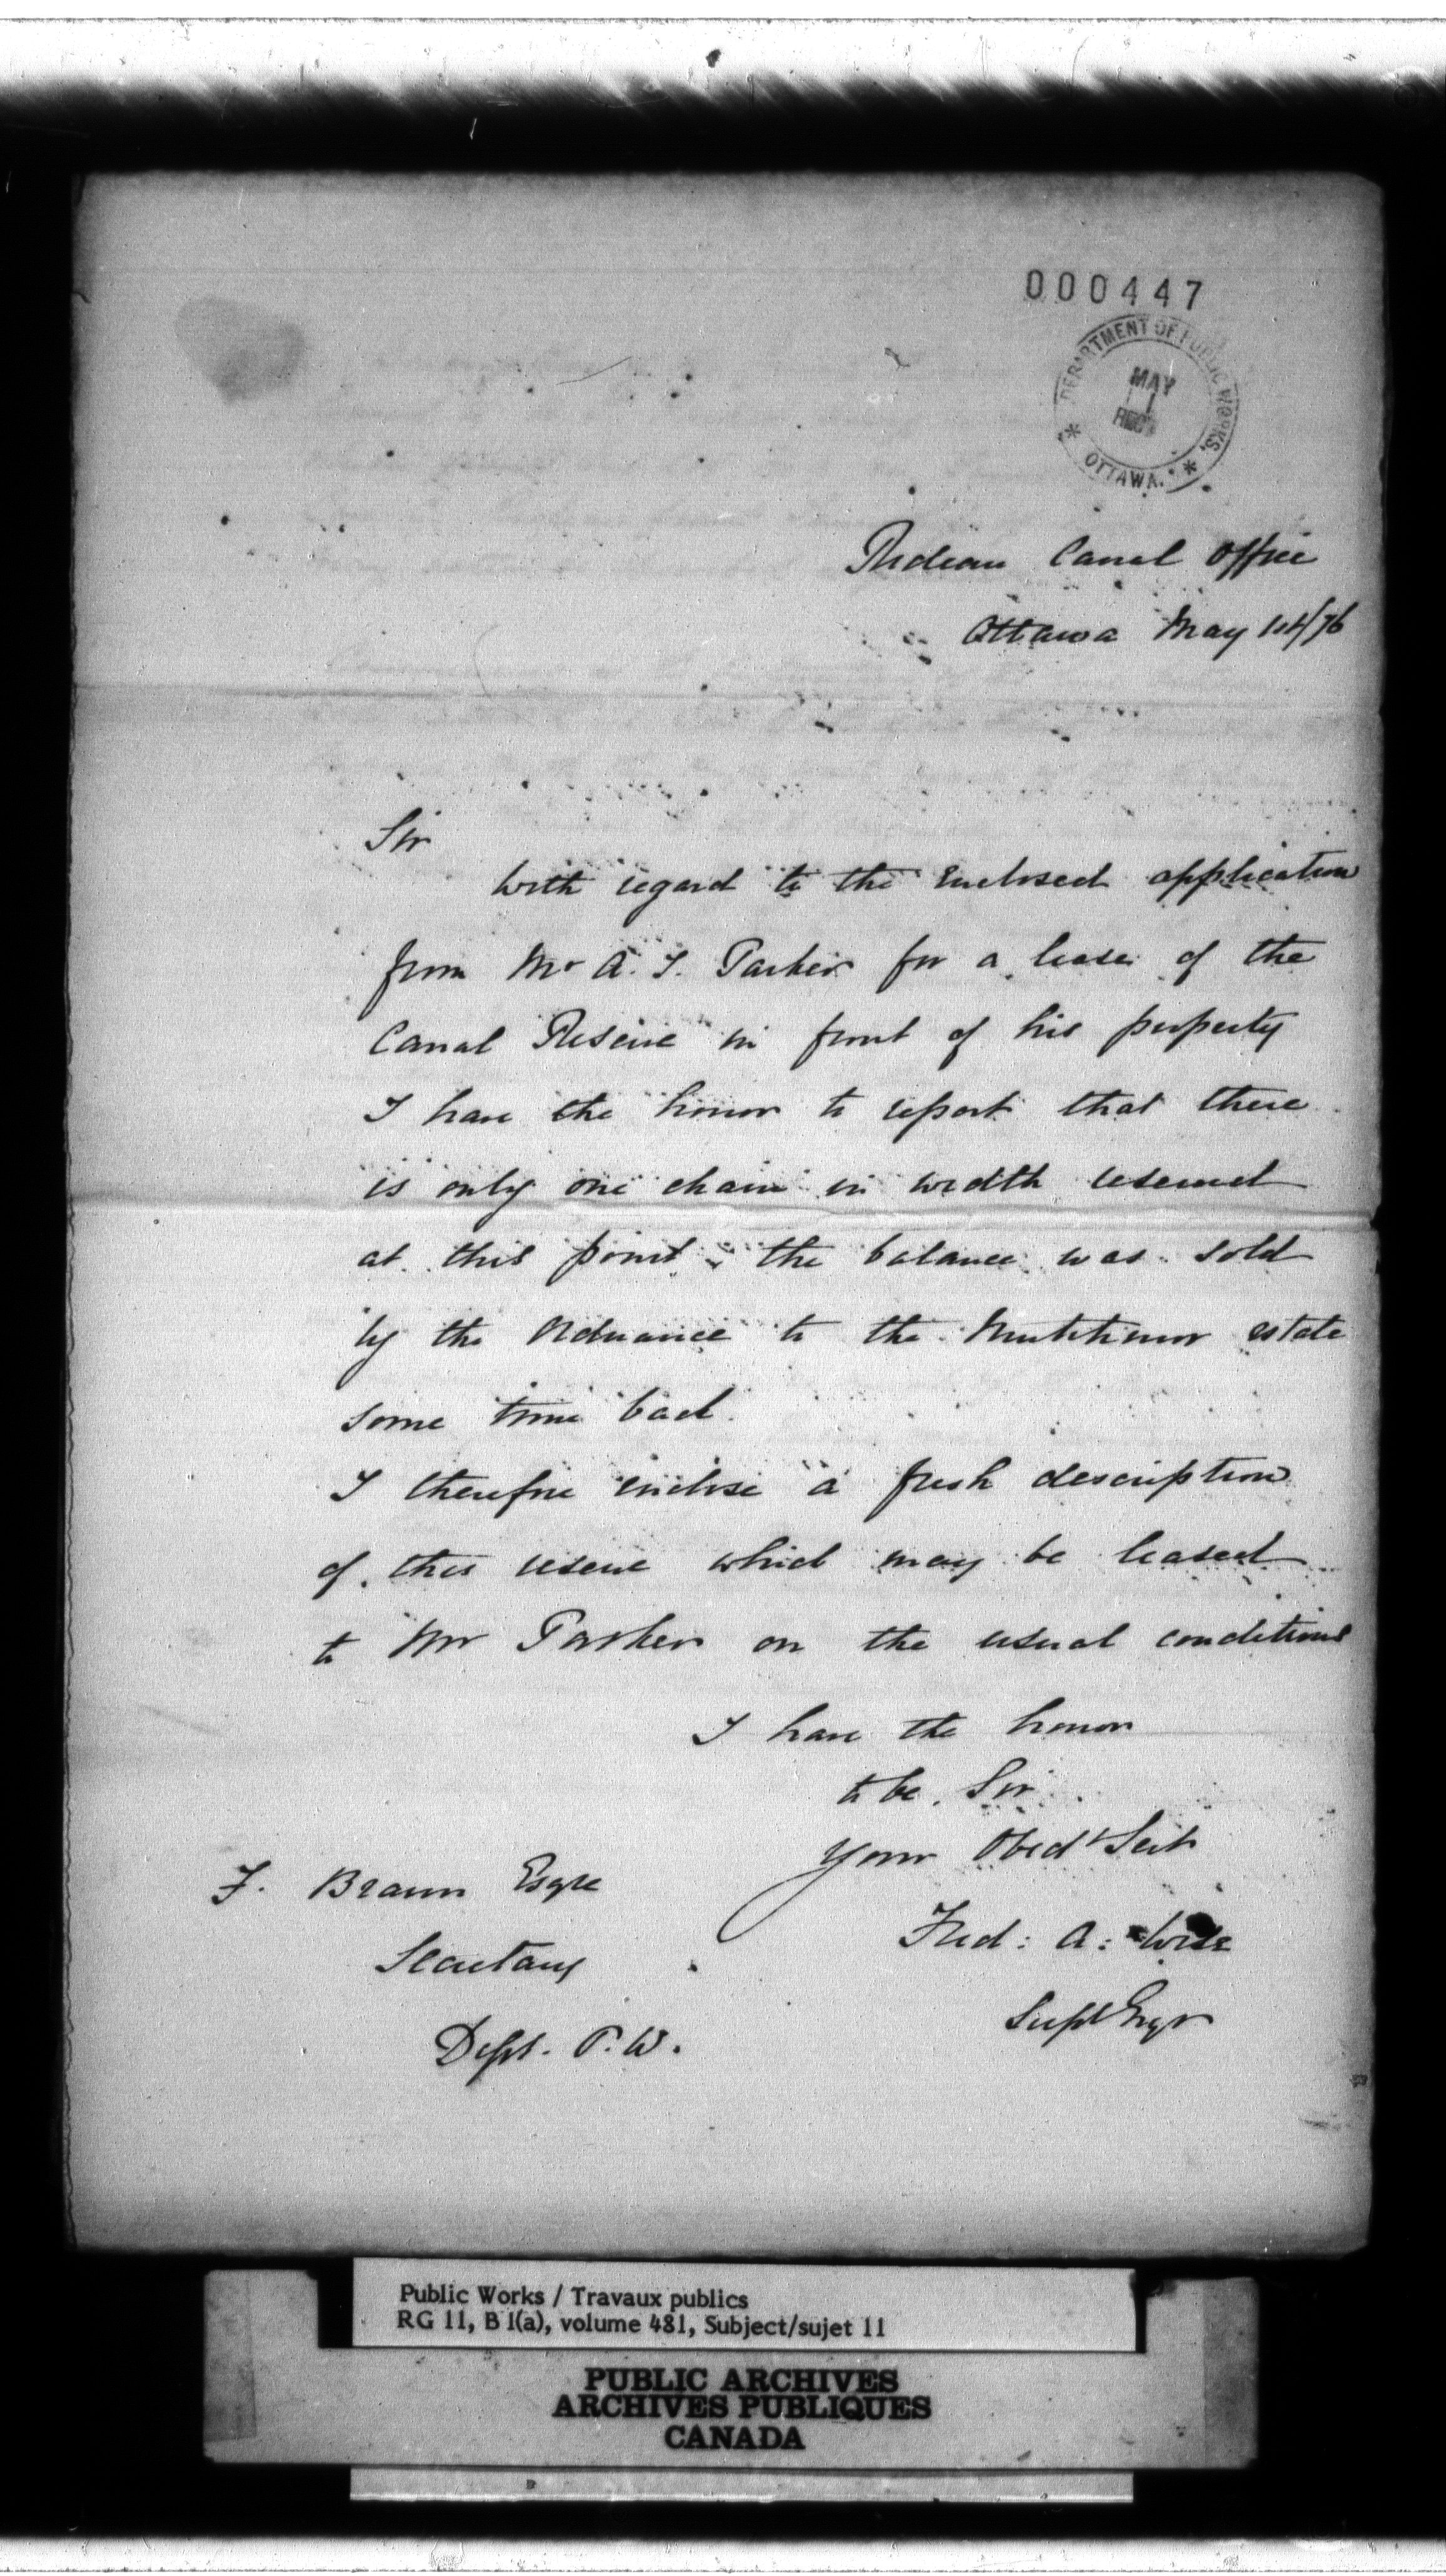 000447
DEPARTMENT OF PUBLIC WORKS.
MAY
1
REC'D
* OTTAWA. *
Rideau Canal Office
Ottawa May 1st/76
Sir
With regard to the enclosed application
from Mr A. J. Parker for a lease of the
Canal Reserve in front of his property
I have the honor to report that there
is only one chain in width reserved
at this point, the balance was sold
by the Ordnance to the estate
some time back.
I therefore enclose a fresh description
of this reserve which may be leased
to Mr Parker on the usual conditions
I have the honor
to be, Sir
Your Obedt Servt
Fred: A: Wise
Supt Engr
F. Braun Esqre
Secretary
Dept. P. W.
Public Works / Travaux publics
RG 11, B 1(a), volume 481, Subject/sujet 11
PUBLIC ARCHIVES
ARCHIVES PUBLIQUES
CANADA